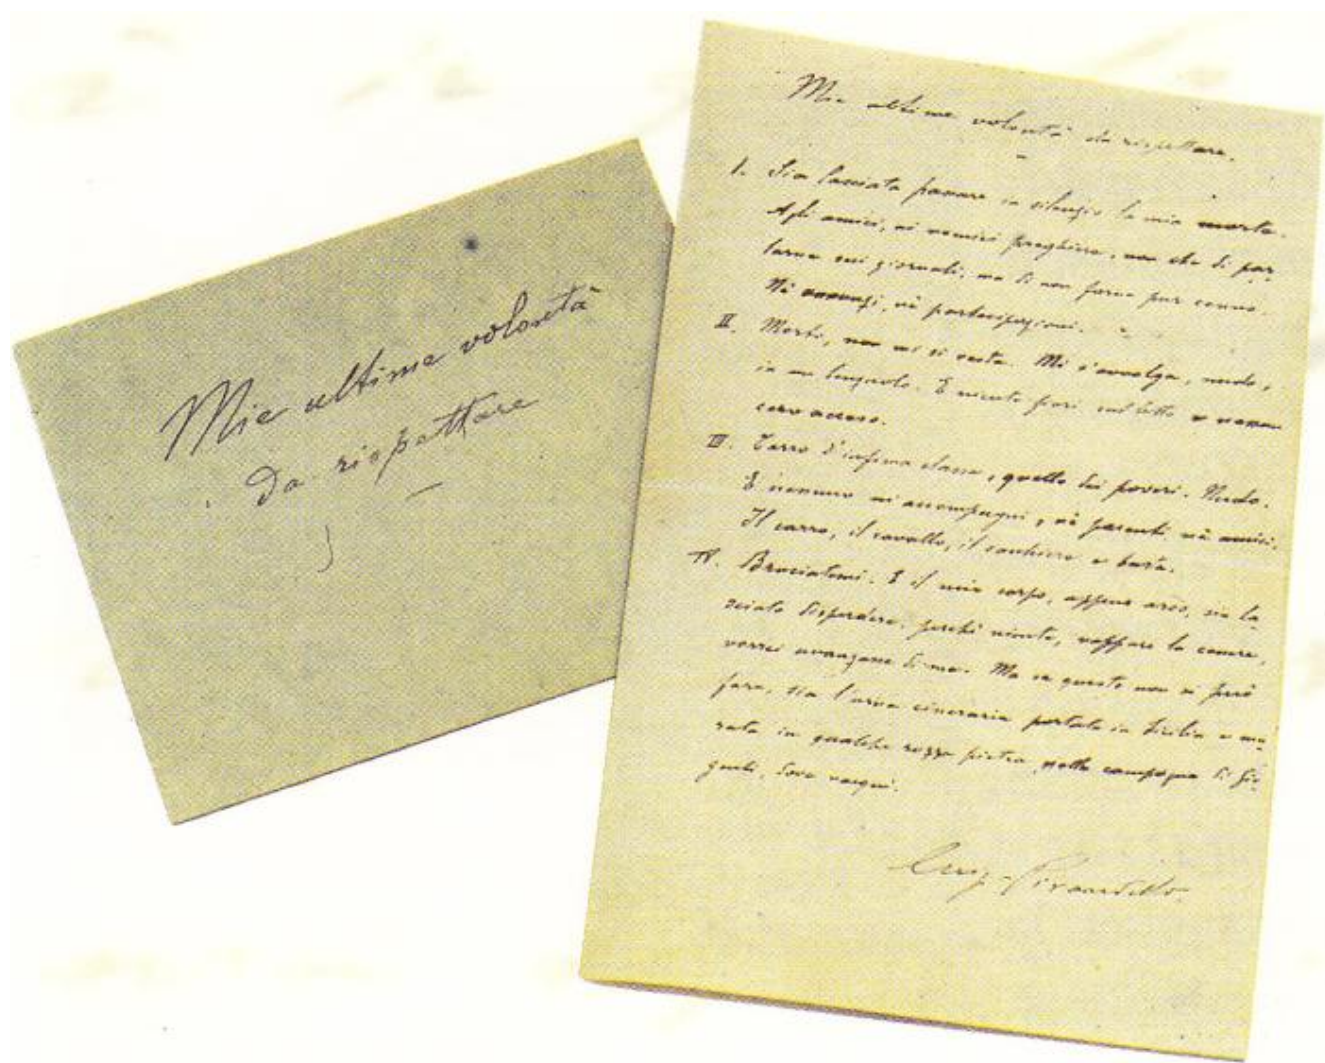 Mie ultime volontà
da rispettare
Mie ultime volontà da rispettare.
I. Sia lasciata passare in silenzio la mia morte.
Agli amici, ai nemici preghiera, non che di par
larne sui giornali, ma di non farne pur cenno.
Nè annunzi, nè partecipazioni.
II. Morto, non mi si vesta. Mi s'avvolga, nudo,
in un lenzuolo. E niente fiori sul letto e nessun
cero acceso.
III. Carro d'infima classe, quello dei poveri. Nudo.
E nessuno m'accompagni, nè parenti nè amici.
Il carro, il cavallo, il cocchiere e basta.
IV. Bruciatemi. E il mio corpo, appena arso, sia la-
sciato disperdere; perchè niente, neppure la cenere,
vorrei avanzasse di me. Ma se questo non si può
fare, sia l'urna cineraria portata in Sicilia e mu-
rata in qualche rozza pietra nella campagna di Gir-
genti, dove nacqui.
Luigi Pirandello.